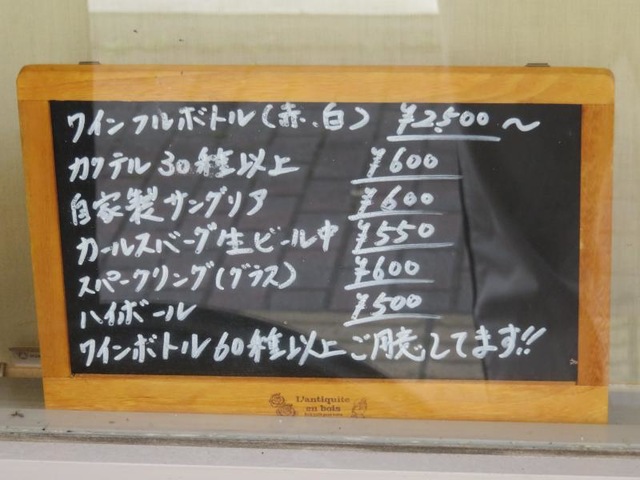 ワインフルボトル(赤、白) ¥2,500～
カクテル30種以上 ¥600
自家製サングリア ¥600
カールスバーグ生ビール中 ¥550
スパークリング(グラス) ¥600
ハイボール ¥500
ワインボトル60種以上ご用意してます!!
L'antiquite
en bois